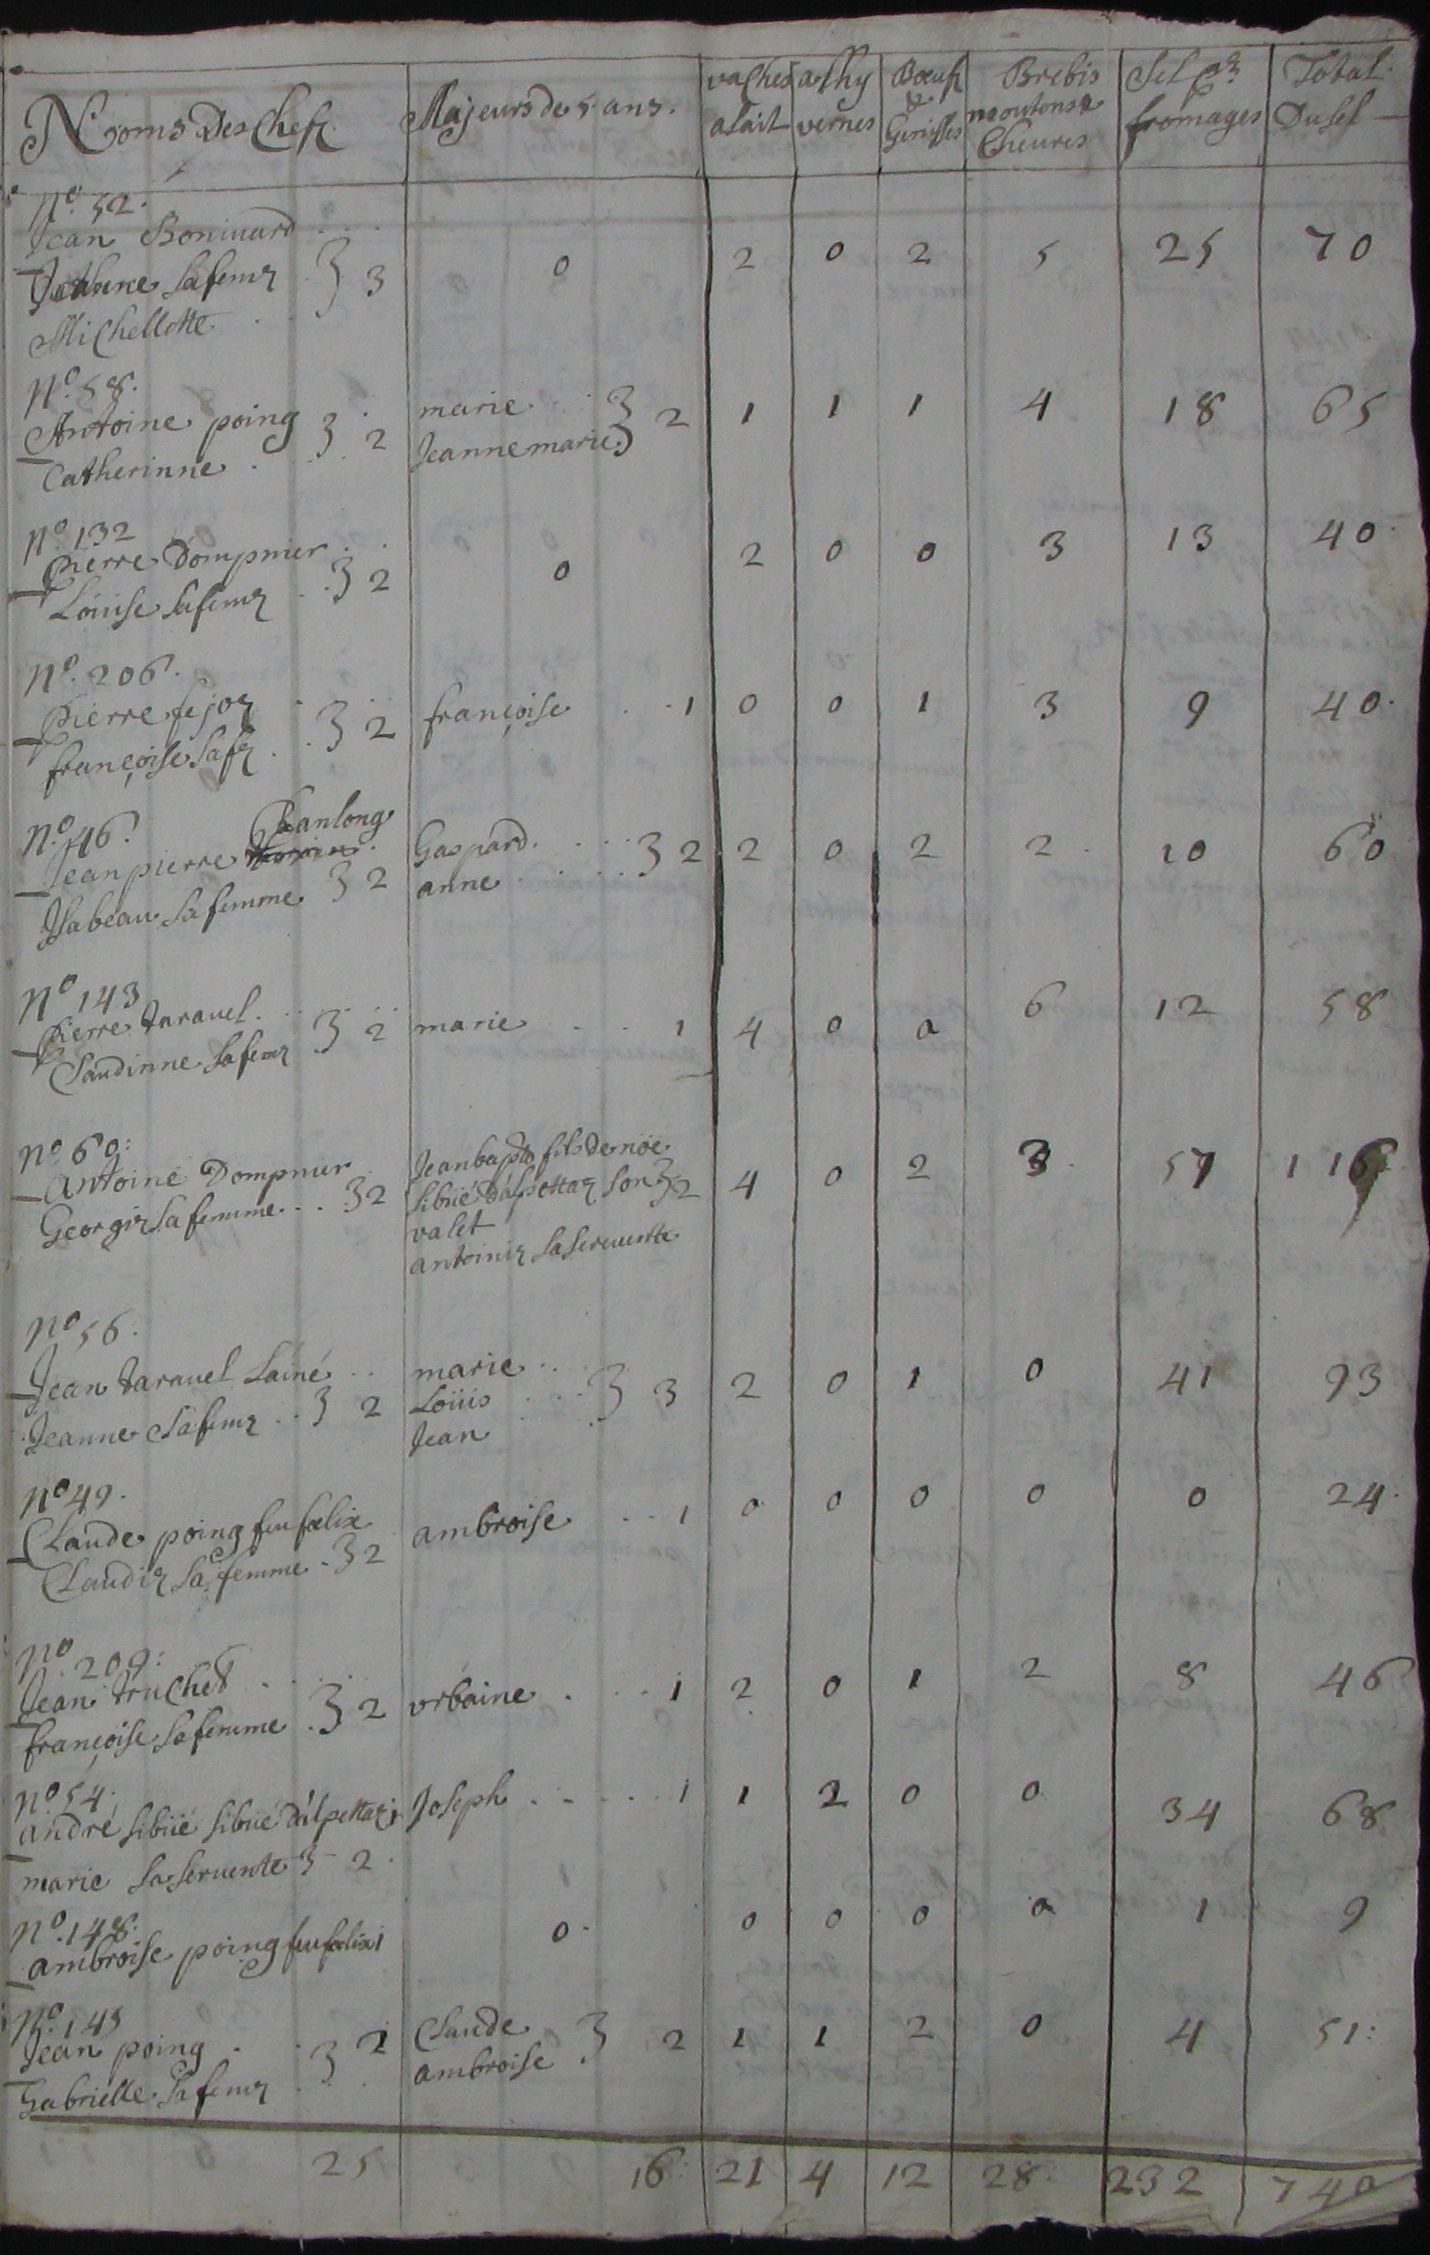 Noms Des Chefz Majeurs de 5 ans. vaches alait athy vernes Bœufz & Genisses Brebis moutons & Cheures Sel pr fromages Total Du sel
No. 52.
Jean Boniuard
Jeanne sa feme 3 0 2 0 2 5 25 70
Michellotte
No. 58.
Antoine poing marie
Catherinne 2 Jeanne marie 2 1 1 1 4 18 65
No. 132
pierre Dompnier
Loüise sa feme 2 0 2 0 0 3 13 40
No. 206.
pierre fejoz
françoise sa fe 2 françoise 1 0 0 1 3 9 40
No. 46. Chanlong
Jean pierre Gaspard
Isabeau sa femme 2 anne 2 2 0 2 2 10 60
No 143
Pierre taravel
Claudinne sa feme 2 marie 1 4 0 0 6 12 58
No 60:
antoine Dompnier Jean bapte fils de noe
Georgie sa femme 2 sibüé dálpettaz son 2 4 0 2 3 57 116
valet
antoinie sa seruente
No 56.
Jean taravel Lainé marie
Jeanne sa feme 2 Loüis 3 2 0 1 0 41 93
Jean
No 49.
Claude poing feu fœlix
Claudie sa femme 2 ambroise 1 0 0 0 0 0 24
No 209:
Jean truchet
françoise sa femme 2 vrbaine 1 2 0 1 2 8 46
No 54.
andré sibüé sibüé dálpettaz Joseph 1 1 2 0 0 34 68
marie sa seruente 2
No. 148.
ambroise poing feu fœlix 1 0 0 0 0 0 1 9
No. 145
Jean poing Claude
Gabrielle sa feme 2 ambroise 2 1 1 2 0 4 51:
25 16 21 4 12 28 232 740